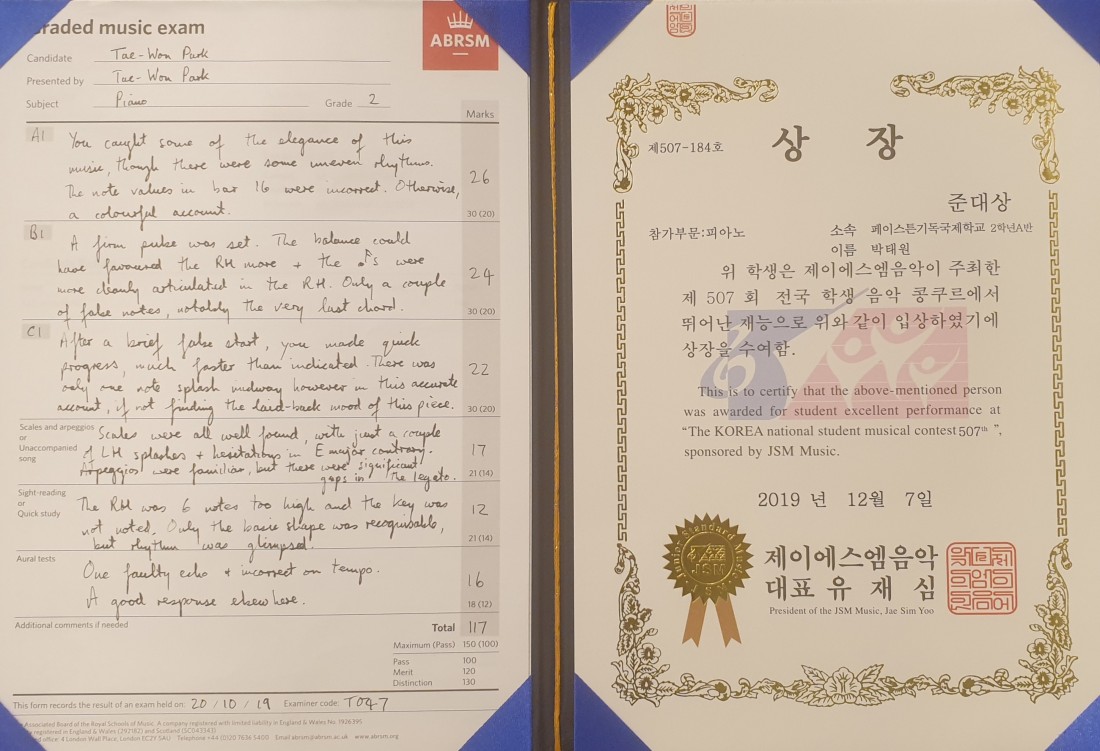 raded music exam
ABRSM
Candidate Tae-Won Park
Presented by Tae-Won Park
Subject Piano Grade 2
Marks
A1
You caught some of the elegance of this
music, though there were some uneven rhythms.
The note values in bar 16 were incorrect. Otherwise,
a colourful account.
26
30 (20)
B1
A firm pulse was set. The balance could
have favoured the RH more + the were
more cleanly articulated in the RH. Only a couple
of false notes, notably the very last chord.
24
30 (20)
C1
After a brief false start, you made quick
progress, much faster than indicated. There was
only one note splash midway however in this accurate
account, if not finding the laid-back mood of this piece.
22
30 (20)
Scales and arpeggios
or
Unaccompanied
song
Scales were all well found, with just a couple
of LH splashes + hesitations in E major contrary.
Arpeggios were familiar, but there were significant
gaps in the legato.
17
21 (14)
Sight-reading
or
Quick study
The RH was 6 notes too high and the key was
not noted. Only the basic shape was recognisable,
but rhythm was glimpsed.
12
21 (14)
Aural tests
One faulty echo + incorrect on tempo.
A good response elsewhere.
16
18 (12)
Additional comments if needed
Total 117
Maximum (Pass) 150 (100)
Pass 100
Merit 120
Distinction 130
This form records the result of an exam held on: 20/10/19 Examiner code: T047
Associated Board of the Royal Schools of Music. A company registered with limited liability in England & Wales No. 1926395
registered in England & Wales (292182) and Scotland (SC043453)
office: 4 London Wall Place, London EC2Y 5AU Telephone +44 (0)20 7636 5400 Email abrsm@abrsm.ac.uk www.abrsm.org
제507-184호
상 장
준대상
참가부문:피아노
소속 페이스튼기독국제학교 2학년A반
이름 박태원
위 학생은 제이에스엠음악이 주최한
제 507 회 전국 학생 음악 콩쿠르에서
뛰어난 재능으로 위와 같이 입상하였기에
상장을 수여함.
This is to certify that the above-mentioned person
was awarded for student excellent performance at
“The KOREA national student musical contest 507th ”,
sponsored by JSM Music.
2019 년 12월 7일
Junior Standard Music
JSM
제이에스엠음악
대표 유 재 심
President of the JSM Music, Jae Sim Yoo